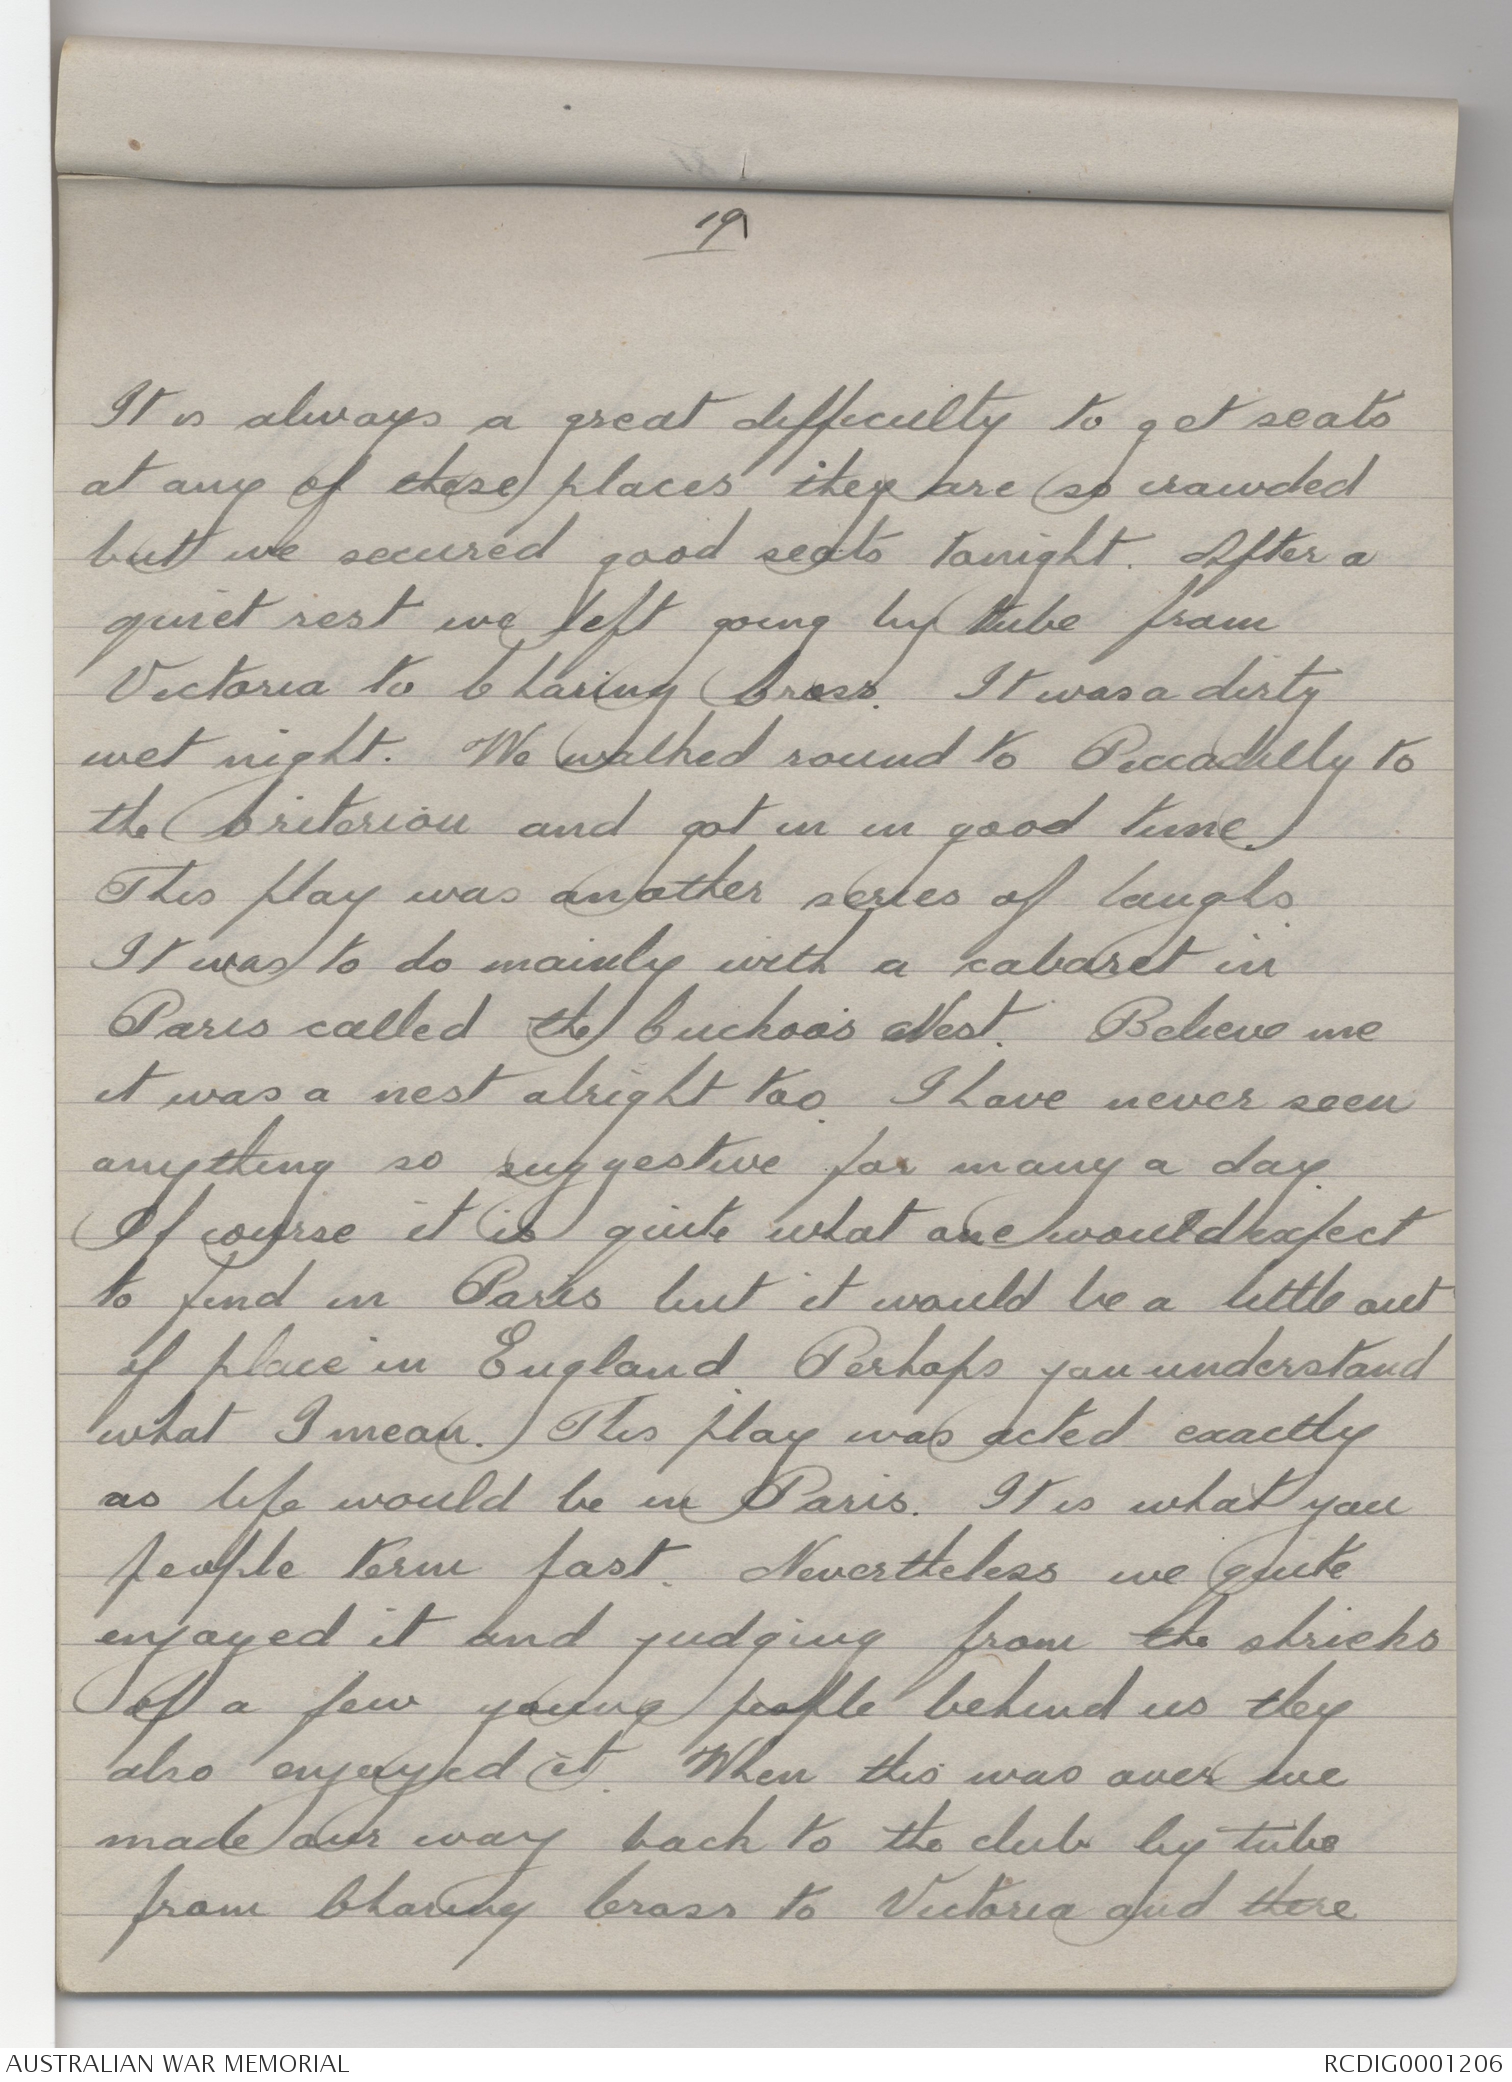 19
It is always a great difficulty to get seats
at any of these places they are so crowded
but we secured good seats tonight. After a
quiet rest we left going by tube from
Victoria to Charing Cross. It was a dirty
wet night. We walked round to Piccadilly to
the Criterion and got in in good time.
This play was another series of laughs.
It was to do mainly with a cabaret in
Paris called the Cuckoo's Nest. Believe me
it was a nest alright too. I have never seen
anything so suggestive for many a day.
Of course it is quite what one would expect
to find in Paris but it would be a little out
of place in England. Perhaps you understand
what I mean. This play was acted exactly
as life would be in Paris. It is what you
people term fast. Nevertheless we quite
enjoyed it and judging from the shrieks
of a few young people behind us they
also enjoyed it. When this was over we
made our way back to the club by tube
from Charing Cross to Victoria and there
AUSTRALIAN WAR MEMORIAL
RCDIG0001206